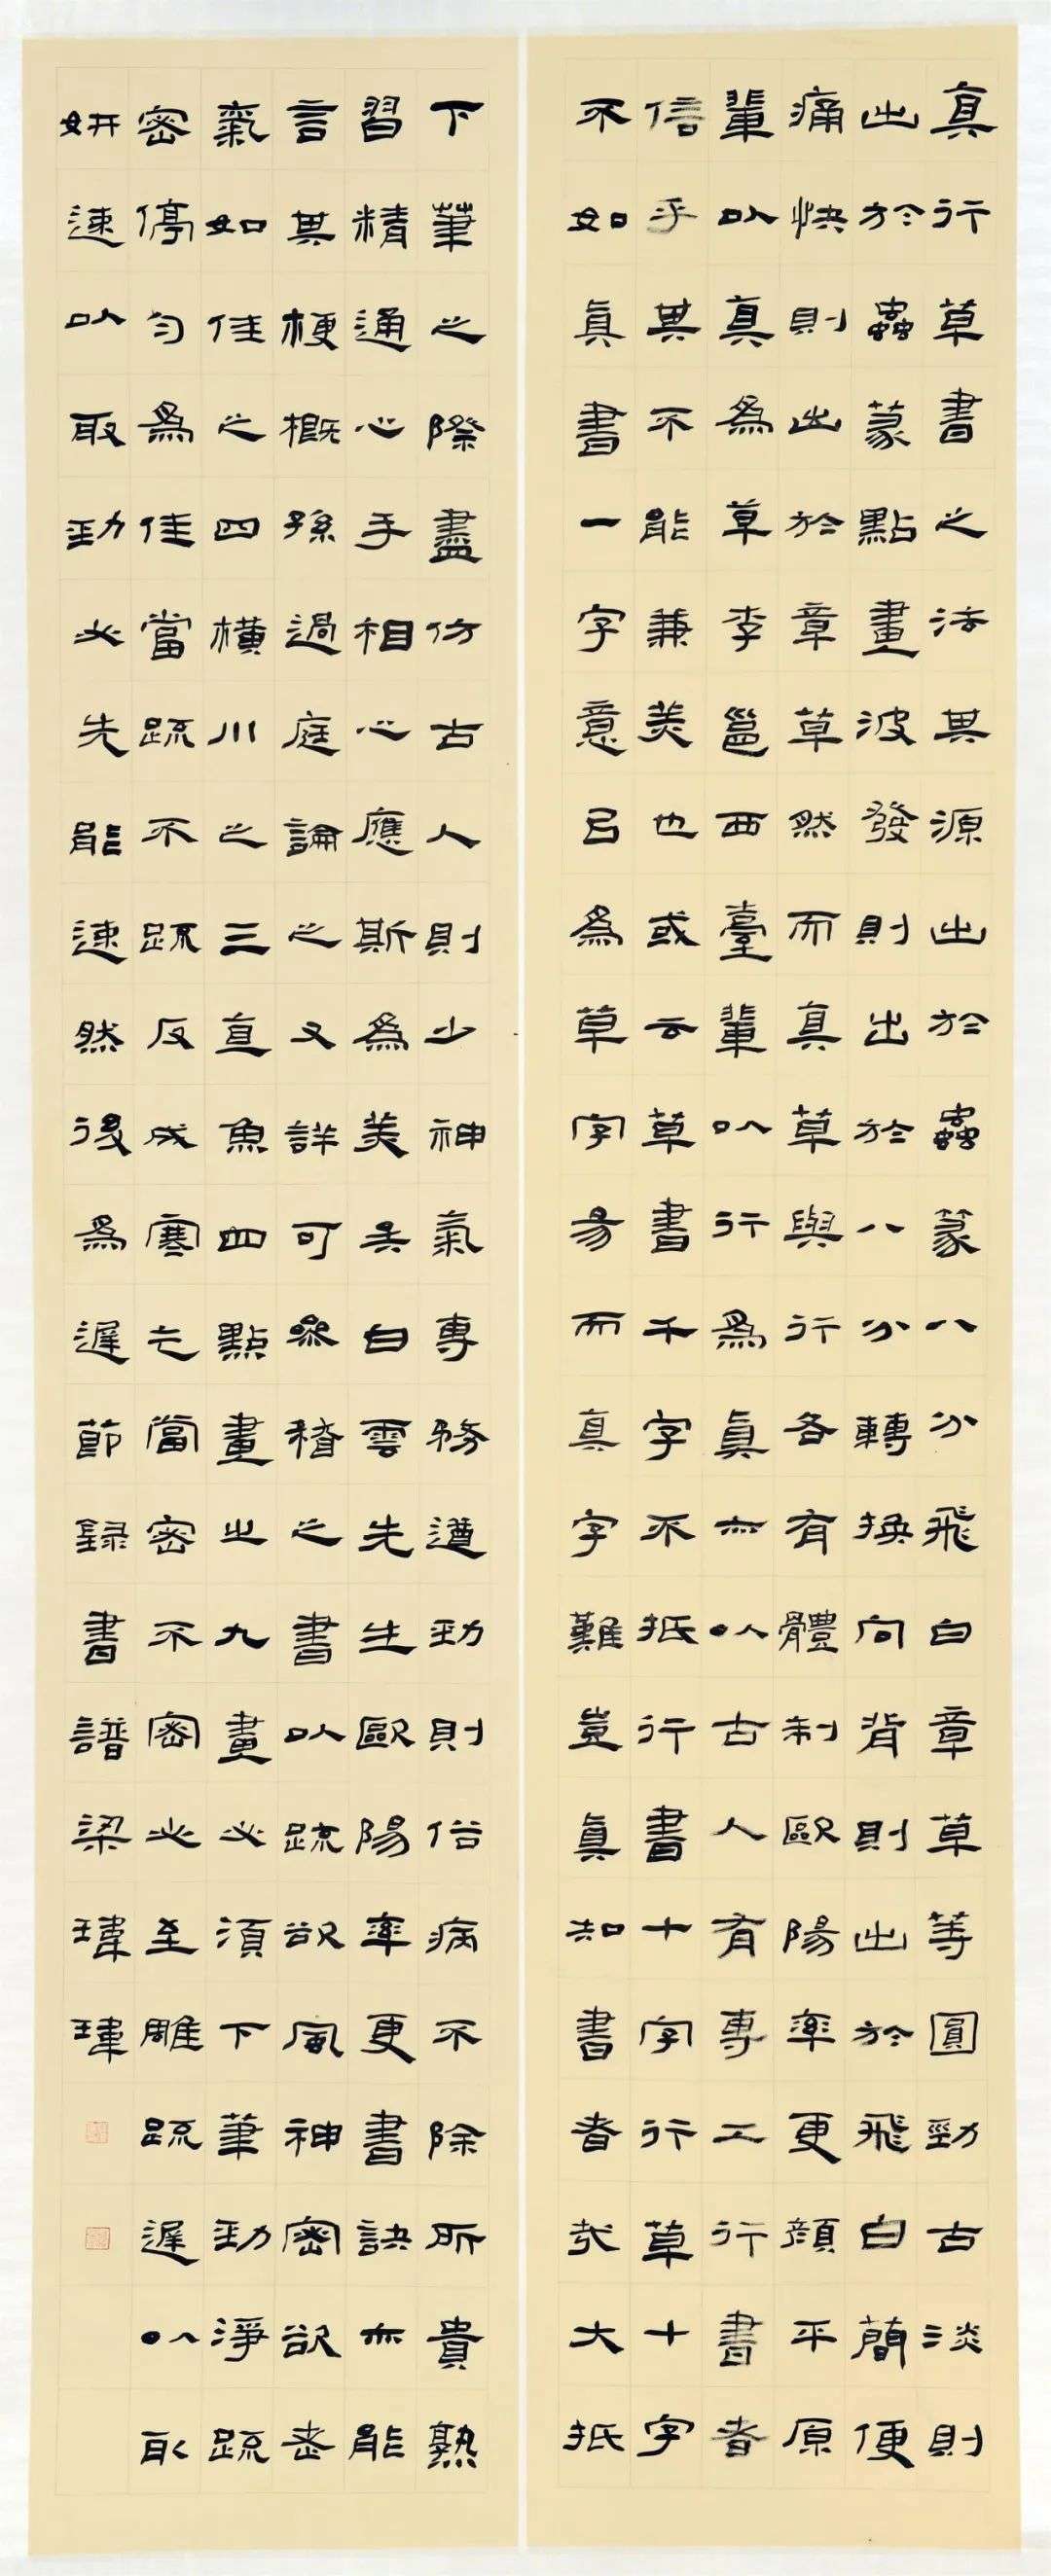 真行草書之法其源出於蟲篆八分飛白章草等圓勁古淡則
出於蟲篆點畫波發則出於八分轉換向背則出於飛白簡便
痛快則出於章草然而真草與行各有體制歐陽率更顏平原
輩以真爲草李邕西臺輩以行爲真亦以古人有專工行書者
信乎其不能兼美也或云草書千字不抵行書十字行草十字
不如真書一字意吕爲草字易而真字難豈真知書者哉大抵
下筆之際盡仿古人則少神氣專務遒勁則俗病不除所貴熟
習精通心手相心應斯爲美矣白雲先生歐陽率更書訣亦能
言其梗概孫過庭論之又詳可參稽之書以疏欲風神密欲老
氣如佳之四橫川之三直魚四點畫之九畫必須下筆勁淨疏
密停勻爲佳當疏不疏反成寒乞當密不密必至雕疏遲以取
妍速以取勁必先能速然後爲遲節録書譜梁瑋瑋